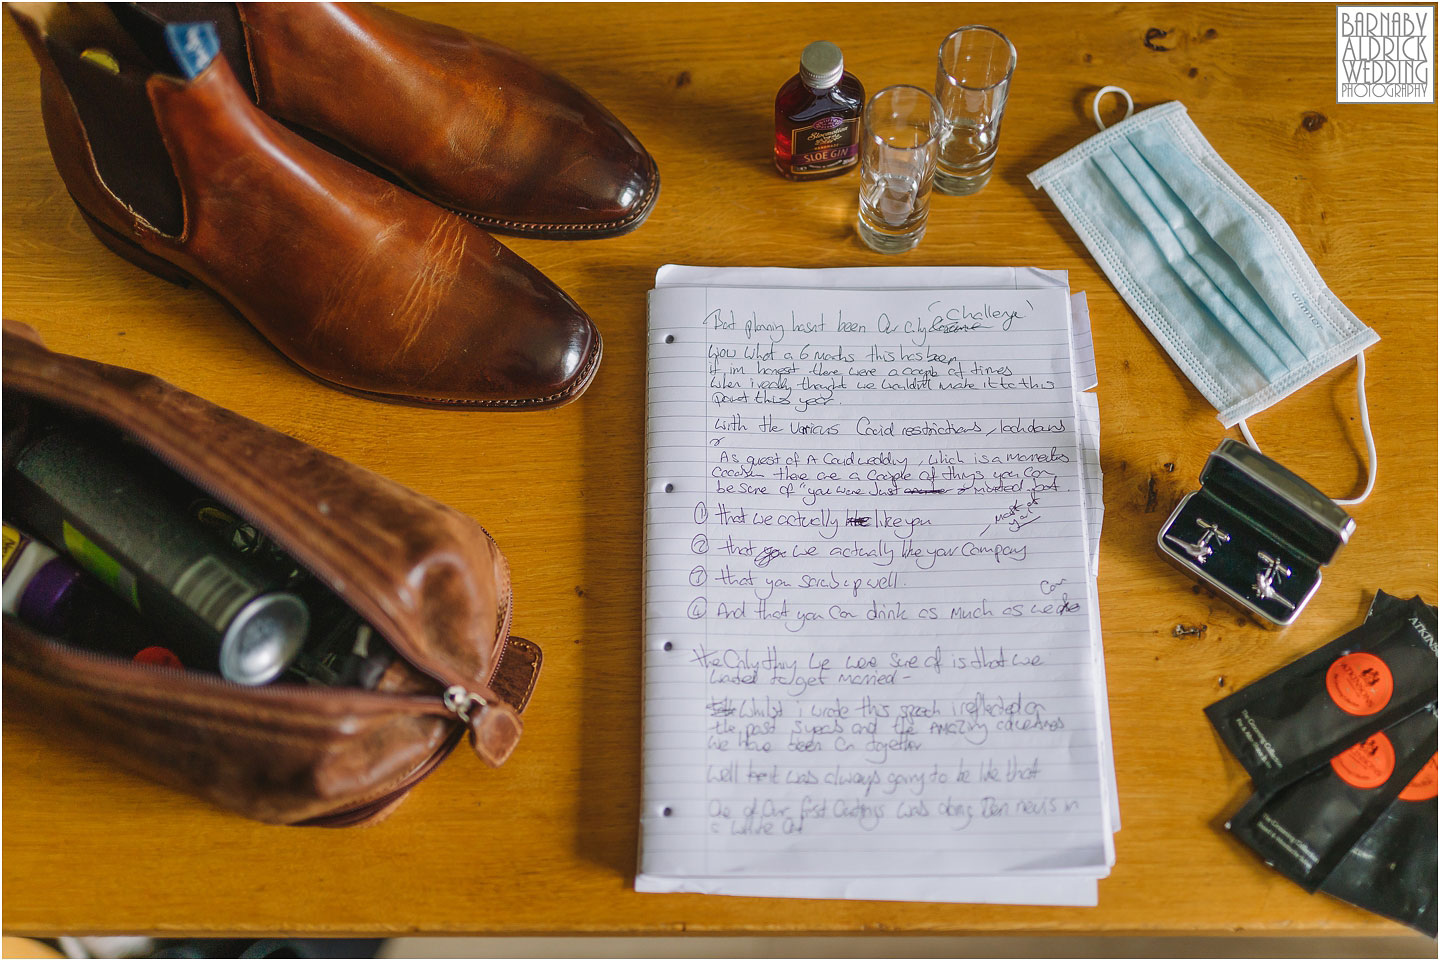 BARNABY
ALDRICK
WEDDING
PHOTOGRAPHY
SLOE GIN
winner
ATKINSONS
But planning hasnt been Our only "Challenge"
Wow What a 6 months this has been
if im honest there were a couple of times
When i really thought we wouldn't make it to this
point this year.
With the Various Covid restrictions, lockdowns
As guest of A Covid wedding, which is a
there are a Couple of things you Can
be sure of "you were Just
① that we actually like you
② that we actually like your Company
③ that you scrub up well.
④ And that you Can drink as much as we Can
the Only thing we were sure of is that we
wanted to get married -
Whilst i wrote this speech i reflected on
the past 5 years and the AMAZing adventures
we have been On together
Well it was always going to be like that
One of Our first was along Ben nevis in
a white